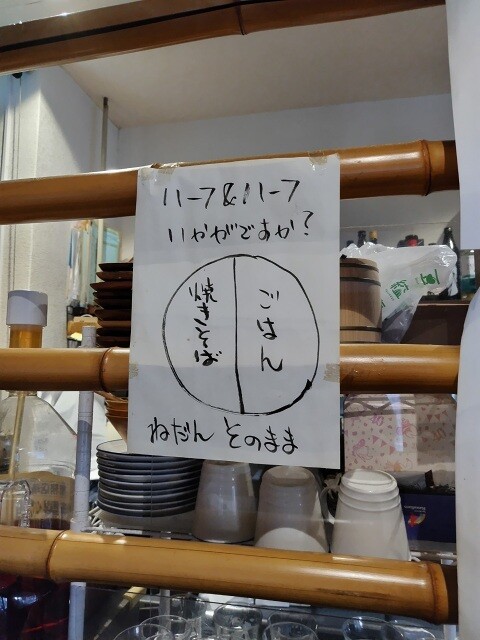 ハーフ&ハーフ
いかがですか?
焼きそば
ごはん
ねだん そのまま